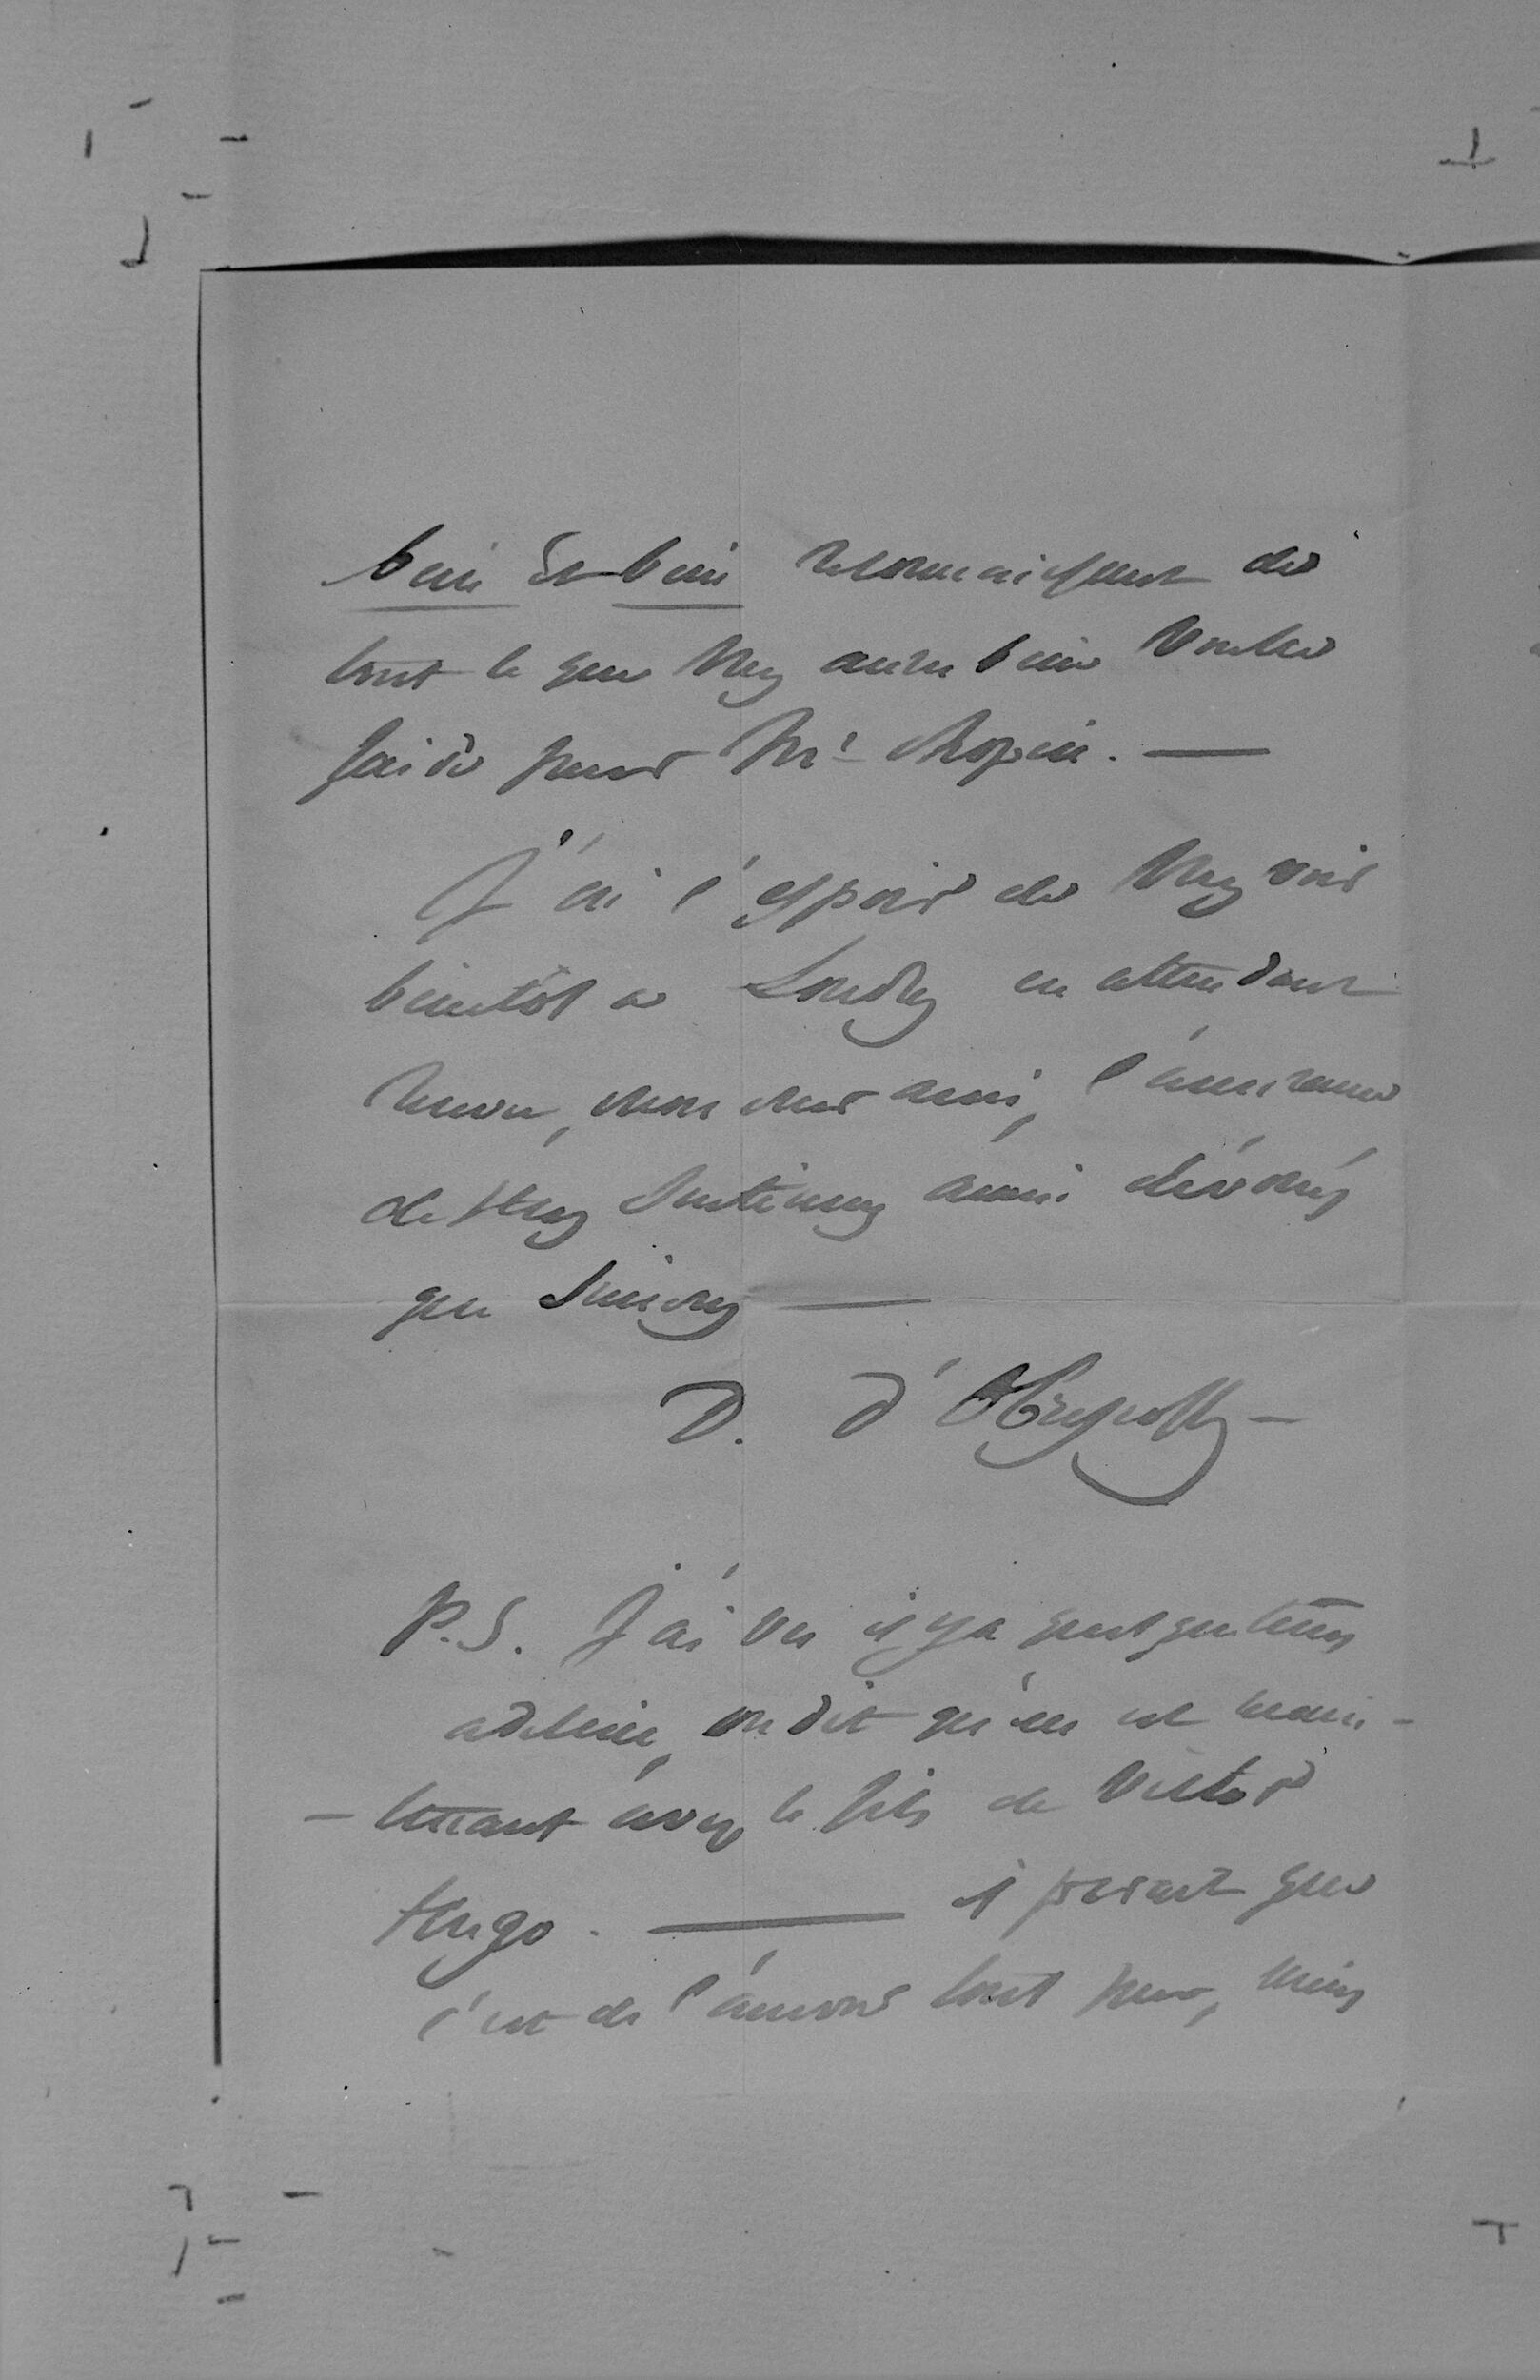 bien et bien reconnaissant de
tout ce que vous aurez bien voulu
faire pour Mr Chopin. —
J'ai l'espoir de vous voir
bientôt a Londres en attendant
recevez, mon cher ami, l'assurance
de mes sentimens aussi dévoués
que sincères —
D. d'Obreskoff —
P.S. J'ai vu il y a quelque tems
adeline, on dit qu'elle est main-
- tenant avec le fils de Victor
Hugo. — il parait que
c'est de l'amour tout pur, mais